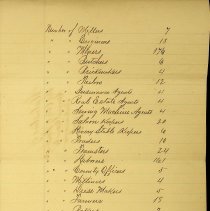 Number of Millers 7
" " Draymen 15
" " Wipers 176
" " Butchers 6
" " Brickmakers 4
" " Pastors 12
" " Insurance Agents 4
" " Real Estate Agents 4
" " Sewing Machine Agents 4
" " Saloon Keepers 20
" " Livery Stable Keepers 6
" " Traders 10
" " Teamsters 24
" " Laborers 161
" " County Officers 5
" " Milliners 4
" " Dress Makers 5
" " Farmers 15